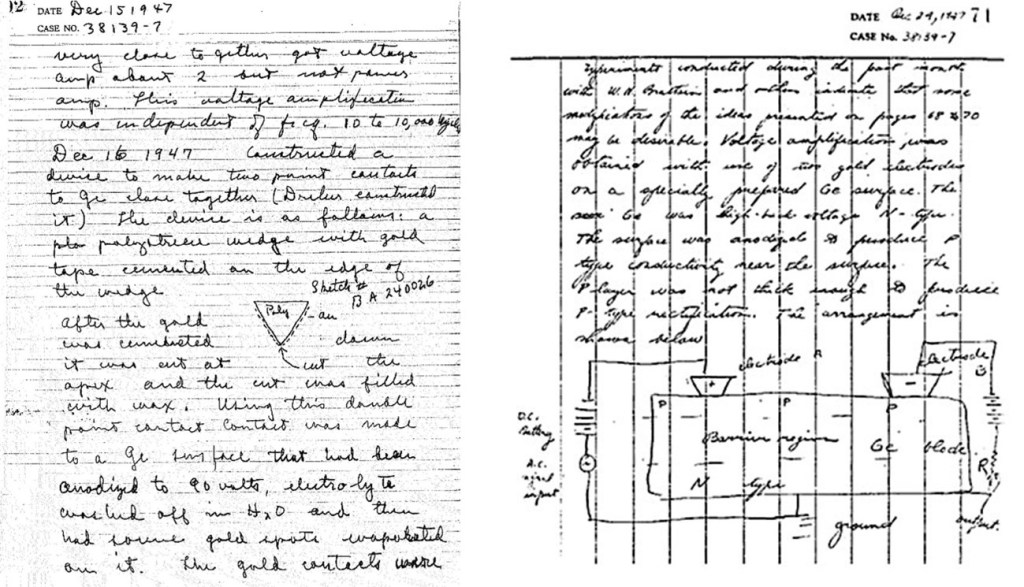 12 DATE Dec 15 1947
CASE NO. 38139-7
very close to gether got voltage
amp about 2 but not power
amp. This voltage amplification
was independent of freq. 10 to 10,000 cycles
Dec 16 1947 Constructed a
device to make two point contacts
to Ge close together (Drilers constructed
it.) The device is as follows: a
polystrene wedge with gold
tape cemented on the edge of
the wedge
Sketch #
BA 240026
Poly
au
after the gold
was cemented down
it was cut at the
cut
apex and the cut was filled
with wax. Using this double
point contact contact was made
to a Ge surface that had been
anodized to 90 volts, electrolyte
washed off in H2O and then
had some gold spots evaporated
on it. The gold contacts were
DATE Dec 24, 1947 71
CASE No. 38139-7
Experiments conducted during the past month
with W.H. Brattain and others indicate that some
modifications of the ideas presented on pages 68 to 70
may be desirable. Voltage amplification was
obtained with use of two gold electrodes
on a specially prepared Ge surface. The
Ge was high-back voltage N-type.
The surface was anodized to produce P
type conductivity near the surface. The
P layer was not thick enough to produce
P-type rectification. The arrangement is
shown below
electrode A
electrode B
+
-
P P P
D.C.
Battery
Barrier region
Ge block
A.C.
input
N type
R
ground
output